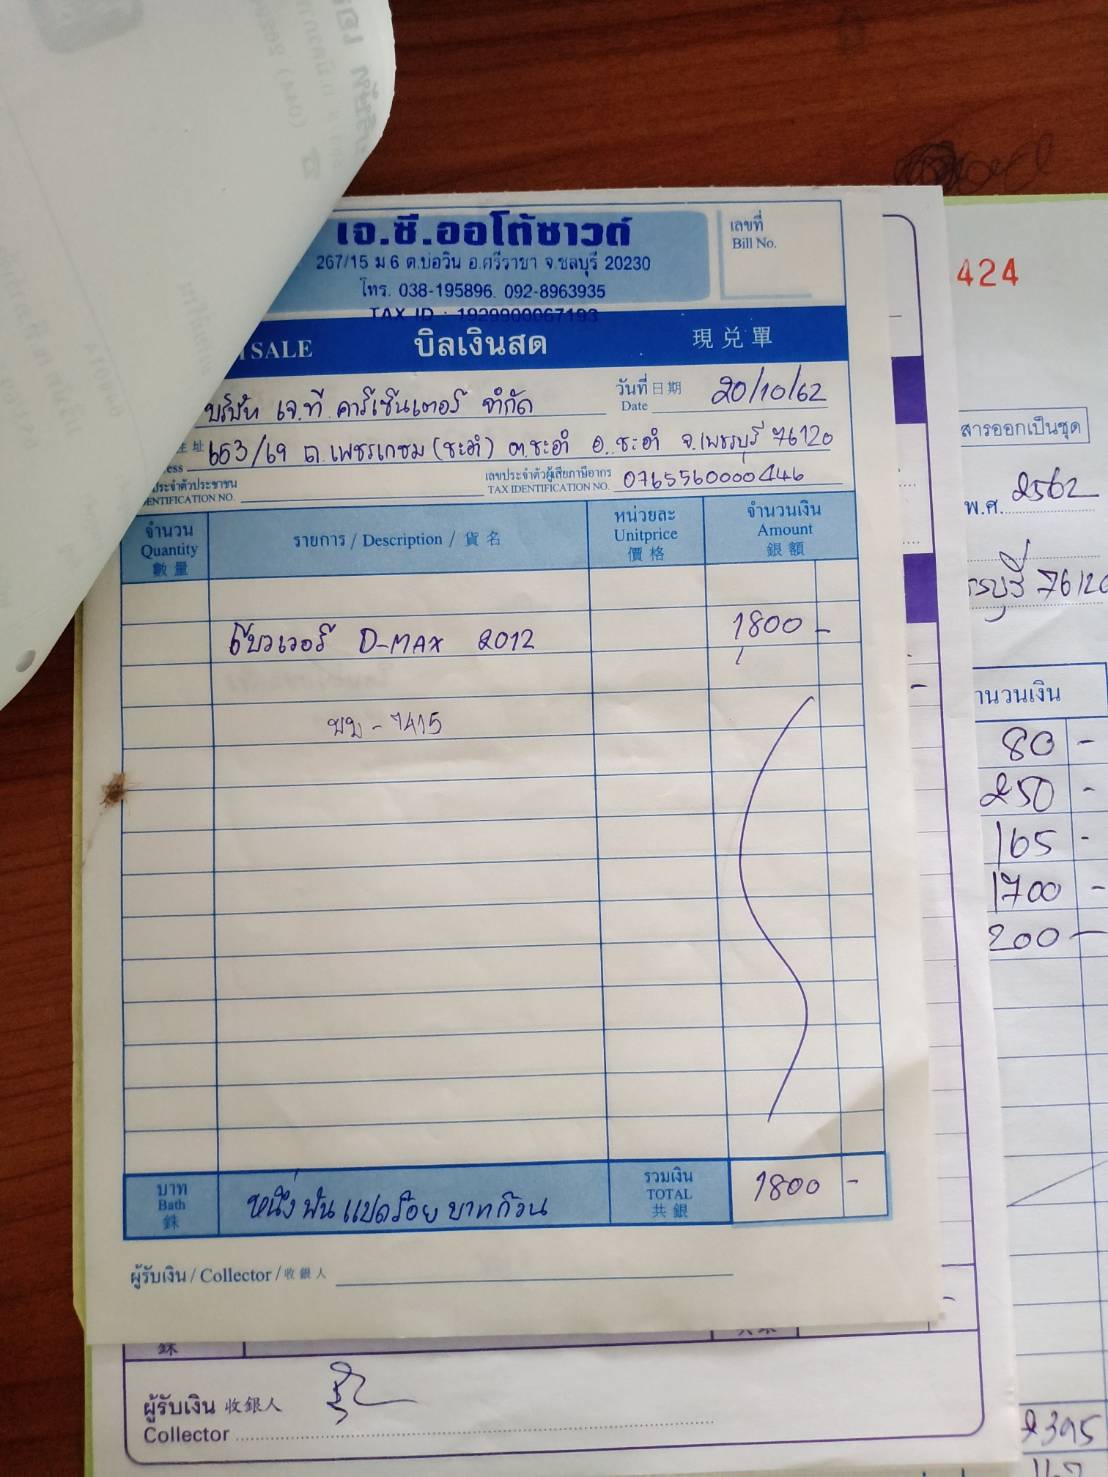 เจ.ซี.ออโต้ซาวด์
267/15 ม 6 ต.บ่อวิน อ.ศรีราชา จ.ชลบุรี 20230
โทร. 038-195896. 092-8963935
TAX ID : 1929900067193
เลขที่
Bill No.
SALE บิลเงินสด 現兌單
บริษัท เจ.ที คาร์เซ็นเตอร์ จำกัด
วันที่ 日期 20/10/62
Date
址 653/69 ถ.เพชรเกษม (ชะอำ) ต.ชะอำ อ.ชะอำ จ.เพชรบุรี 76120
ess
ประจำตัวประชาชน
ENTIFICATION NO.
เลขประจำตัวผู้เสียภาษีอากร
TAX IDENTIFICATION NO. 0765560000446
จำนวน
Quantity
數量
รายการ / Description / 貨名
หน่วยละ
Unitprice
價格
จำนวนเงิน
Amount
銀額
D-MAX 2012 1800 -
- 7415
บาท
Bath
銖
หนึ่งพันแปดร้อยบาทถ้วน
รวมเงิน
TOTAL
共銀
1800 -
ผู้รับเงิน / Collector / 收銀人
銖
ผู้รับเงิน 收銀人
Collector
424
สารออกเป็นชุด
พ.ศ. 2562
76120
านวนเงิน
80 -
250 -
165 -
1700 -
200 -
2395